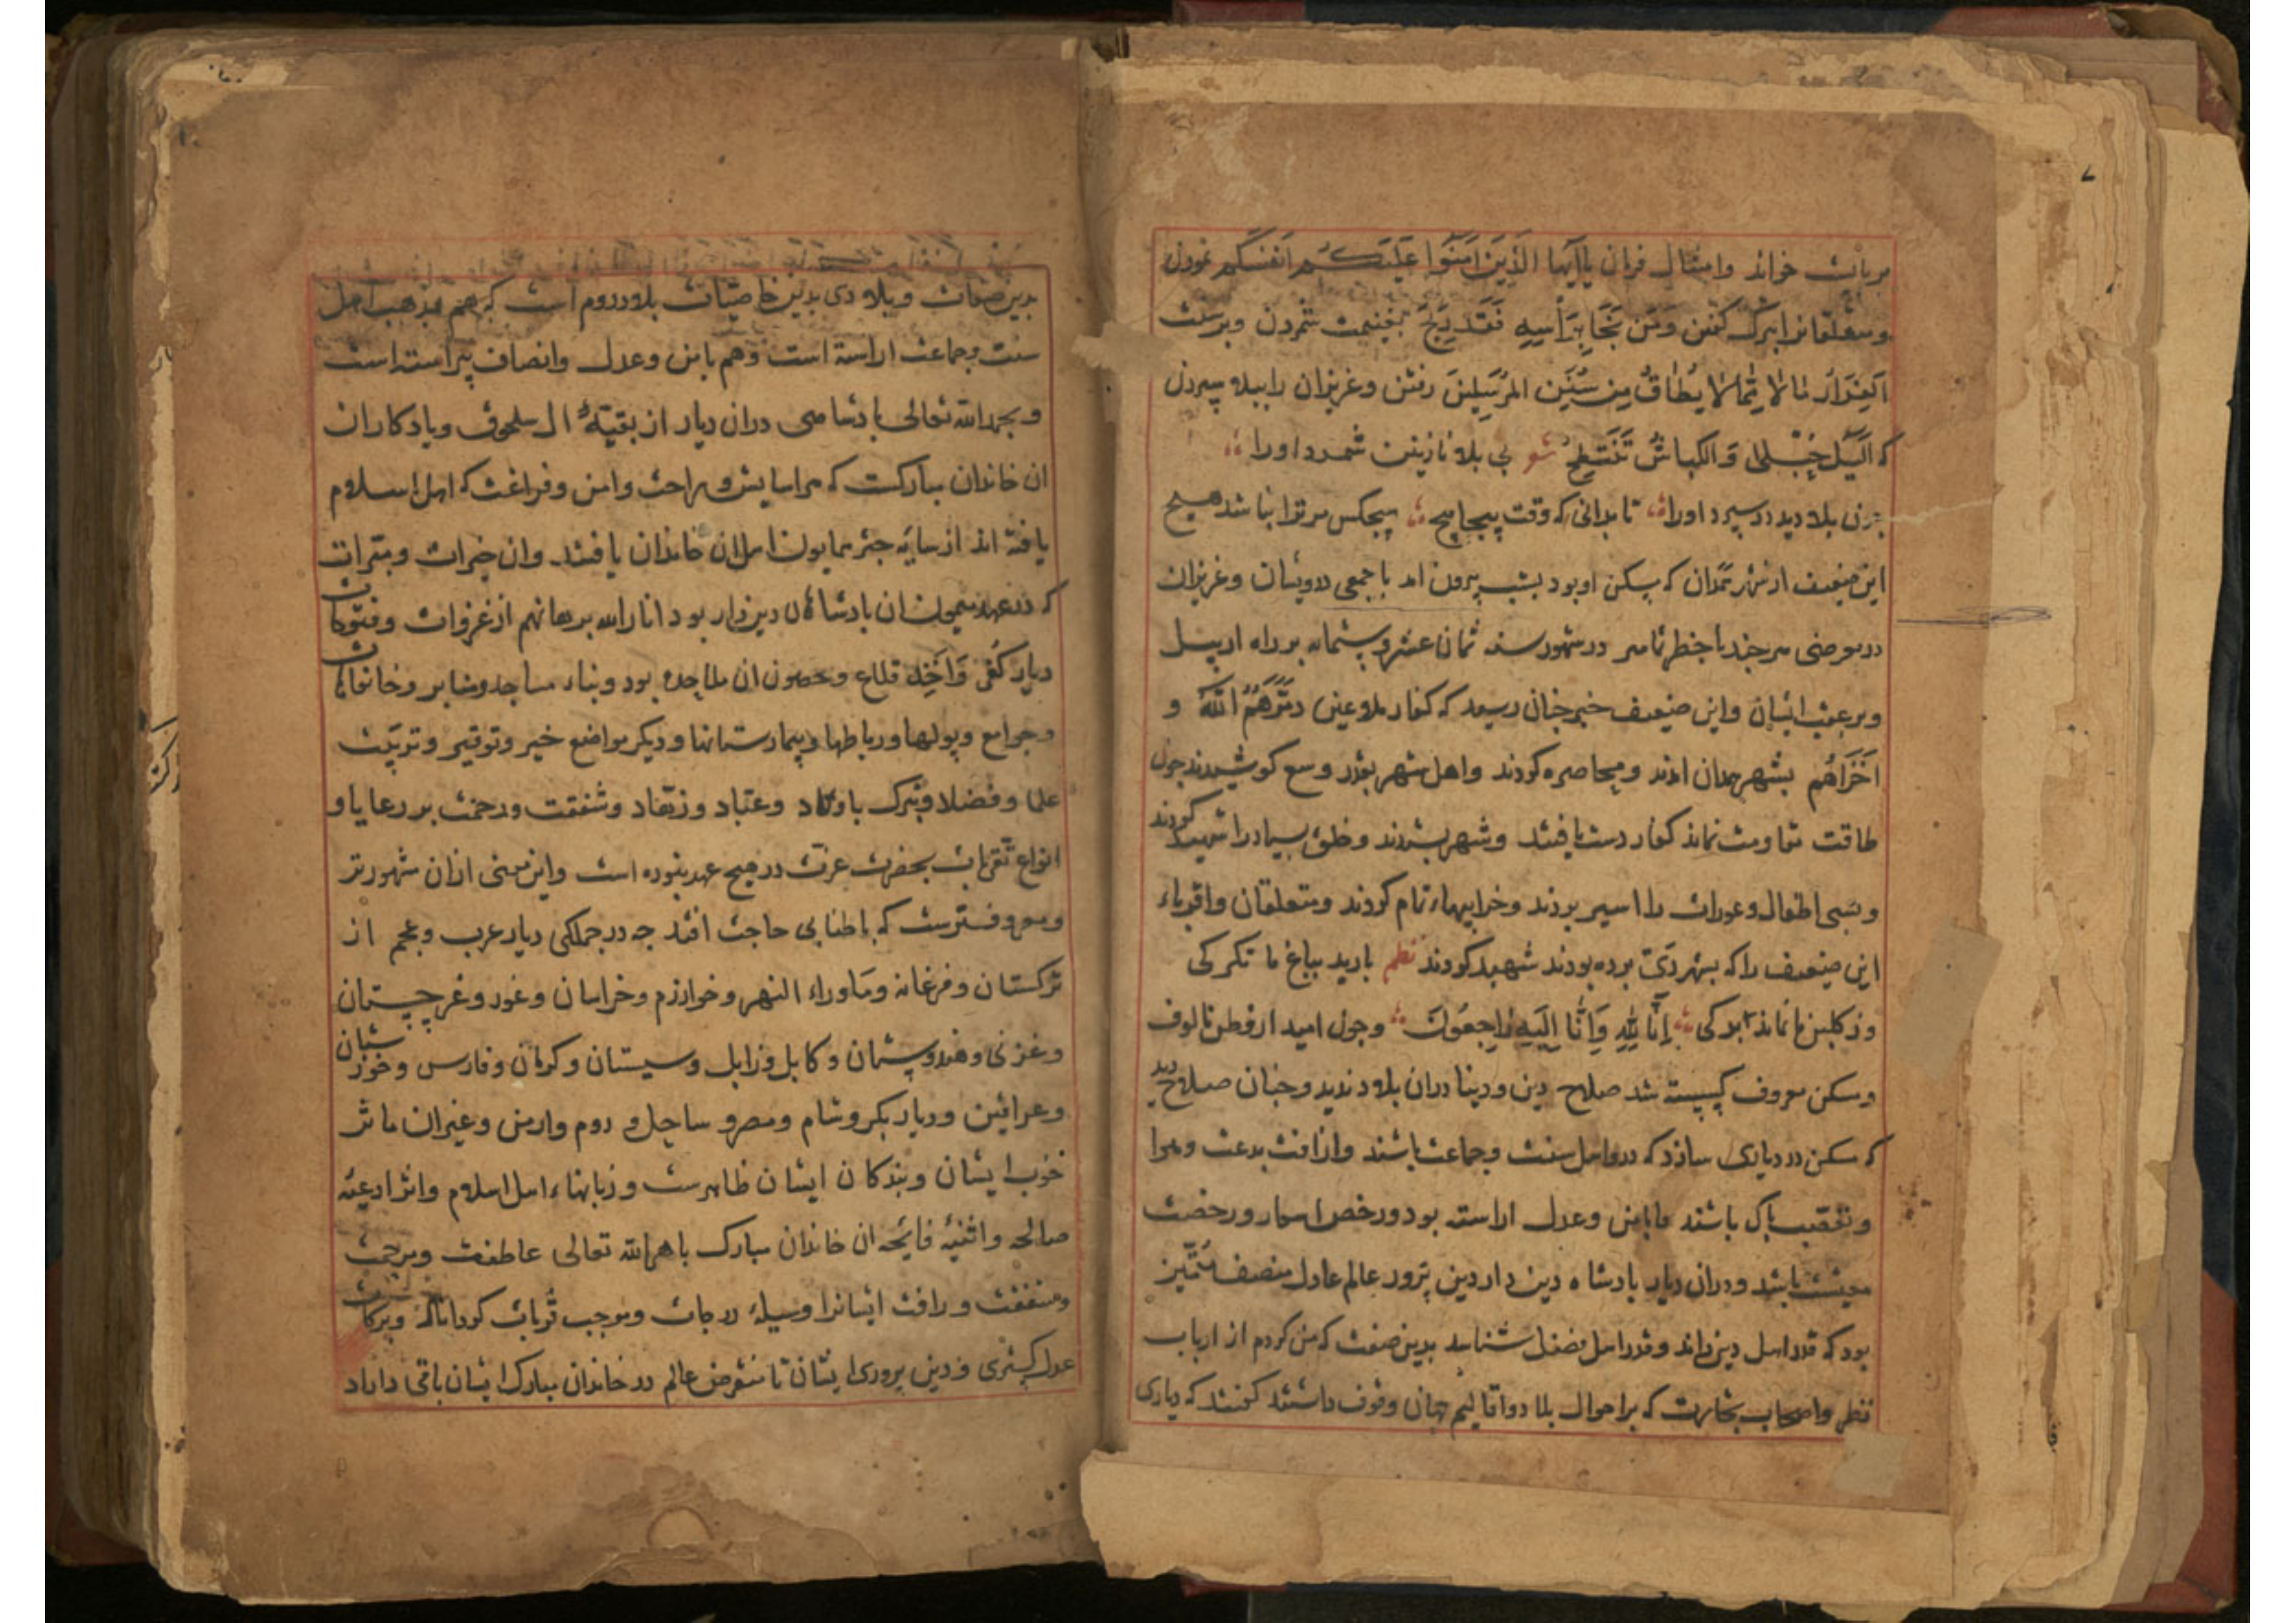 بربایت خواند وامتثال فرمان یا ایها الَّذِینَ اٰمَنُوا عَلَیْکُم اَنفسَکُم نمودن
ومتعلقانرا بترک کفتن وَمَن نَجَا بِرَأسِهِ فَقَد رَبِحَ بغنیمت شمردن وبر سنت
اَلفِرَارُ مما لا یُطَاقُ مِن سُنَنِ المُرسَلِینَ رفتن وعزیزان را ببلا سپردن
که اللیل حُبلی وَالکباشُ تَنتَطِحُ شعر بی بلا نازنین شمرد اورا
چون بلا دید در سپرد اورا تا بدانی که وقت پیچاپیچ هیچکس مر ترا نباشد هیچ
این ضعیف از شهر همدان که مسکن او بود بشب بیرون امد با جمعی درویشان وعزیزان
در معرضی هر چند با خطر تامر در شهور سنه ثمان عشر وستمایه بر راه اربیل
وبر عقب ایشان واین ضعیف خبر چنان رسید که کفار ملاعین دَمَّرَهُمُ اللهُ و
اَخزَاهُم بشهر همدان امدند ومحاصره کردند واهل شهر بقدر وسع کوشیدند چون
طاقت مقاومت نماند کفار دست یافتند وشهر بستدند وخلق بسیار را شهید کردند
وبسی اطفال وعورات را اسیر بردند وخرابیهاء تمام کردند ومتعلقان واقرباء
این ضعیف را که بشهر ری برده بودند شهید کردند نظم بارید بباغ ما تکرکی
وز کلبن ما نماند برکی اِنَّا لِلّٰهِ وَاِنَّا اِلَیهِ رَاجِعُونَ وچون امید از وطن مالوف
ومسکن معروف کسسته شد صلاح دین ودنیا دران بلاد ندید وچنان صلاح دید
که مسکن در دیاری سازد که درو اهل سنت وجماعت باشند واز افت بدعت وهوا
وتعصب پاک باشند وبامن وعدل اراسته بود ورخص اسعار ورخصت
معیشت باشد ودران دیار بادشاه دین دار دین پرور عالم عادل منصف ممیّز
بود که قدر اهل دین داند وقدر اهل فضل شناسد بدین صفت که من کردم از ارباب
نظر واصحاب تجارت که بر احوال بلاد واقالیم جهان وقوف داشتند کفتند که دیاری
بدین صفات وبلادی بدین خاصیات بلاد روم است که هم بمذهب اهل
سنت وجماعت اراسته است وهم بامن وعدل وانصاف پیراسته است
وبحمد الله تعالی بادشاهی دران دیار از بقیهٔ ال سلجوق ویادکاران
ان خاندان مبارکست که هر اسایش وراحت وامن وفراغت که اهل اسلام
یافته اند از سایه چتر همایون اهل ان خاندان یافتند وان خیرات ومبرات
که در عهد میمون ان بادشاهان دین دار بود انار الله برهانهم از غزوات وفتوحات
دیار کفر وَاخذ قلاع وحصون ان ملاحده بود وبناء مساجد ومنابر وخانقاهات
وجوامع وپولها ورباطها وبیمارستانها ودیکر مواضع خیر وتوقیر وتربیت
علما وفضلا وتبرک باوتاد وعباد وزهاد وشفقت ورحمت بر رعایا و
انواع تقربات بحضرت عزت در هیچ عهد نبوده است واین معنی ازان مشهورتر
ومعروفترست که باطنابی حاجت افتد چه در جملکی دیار عرب وعجم از
ترکستان وفرغانه وماوراء النهر وخوارزم وخراسان وغور وغرجستان
وغزنی وهندوستان وکابل وزابل وسیستان وکرمان وفارس وخوزستان
وعراقین ودیار بکر وشام ومصر وساحل و روم وارمن وغیران ماثر
خوب ایشان وبندکان ایشان ظاهرست وزبانهاء اهل اسلام واثر ادعیه
صالحه واثنیه فایحه ان خاندان مبارک باهم الله تعالی عاطفت ومرحمت
ومنفقت ورافت ایشانرا وسیلهٔ درجات وموجب قربات کرداناد وبرکات
عدل کستری ودین پروری ایشان تا منقرض عالم در خاندان مبارک ایشان باقی داراد